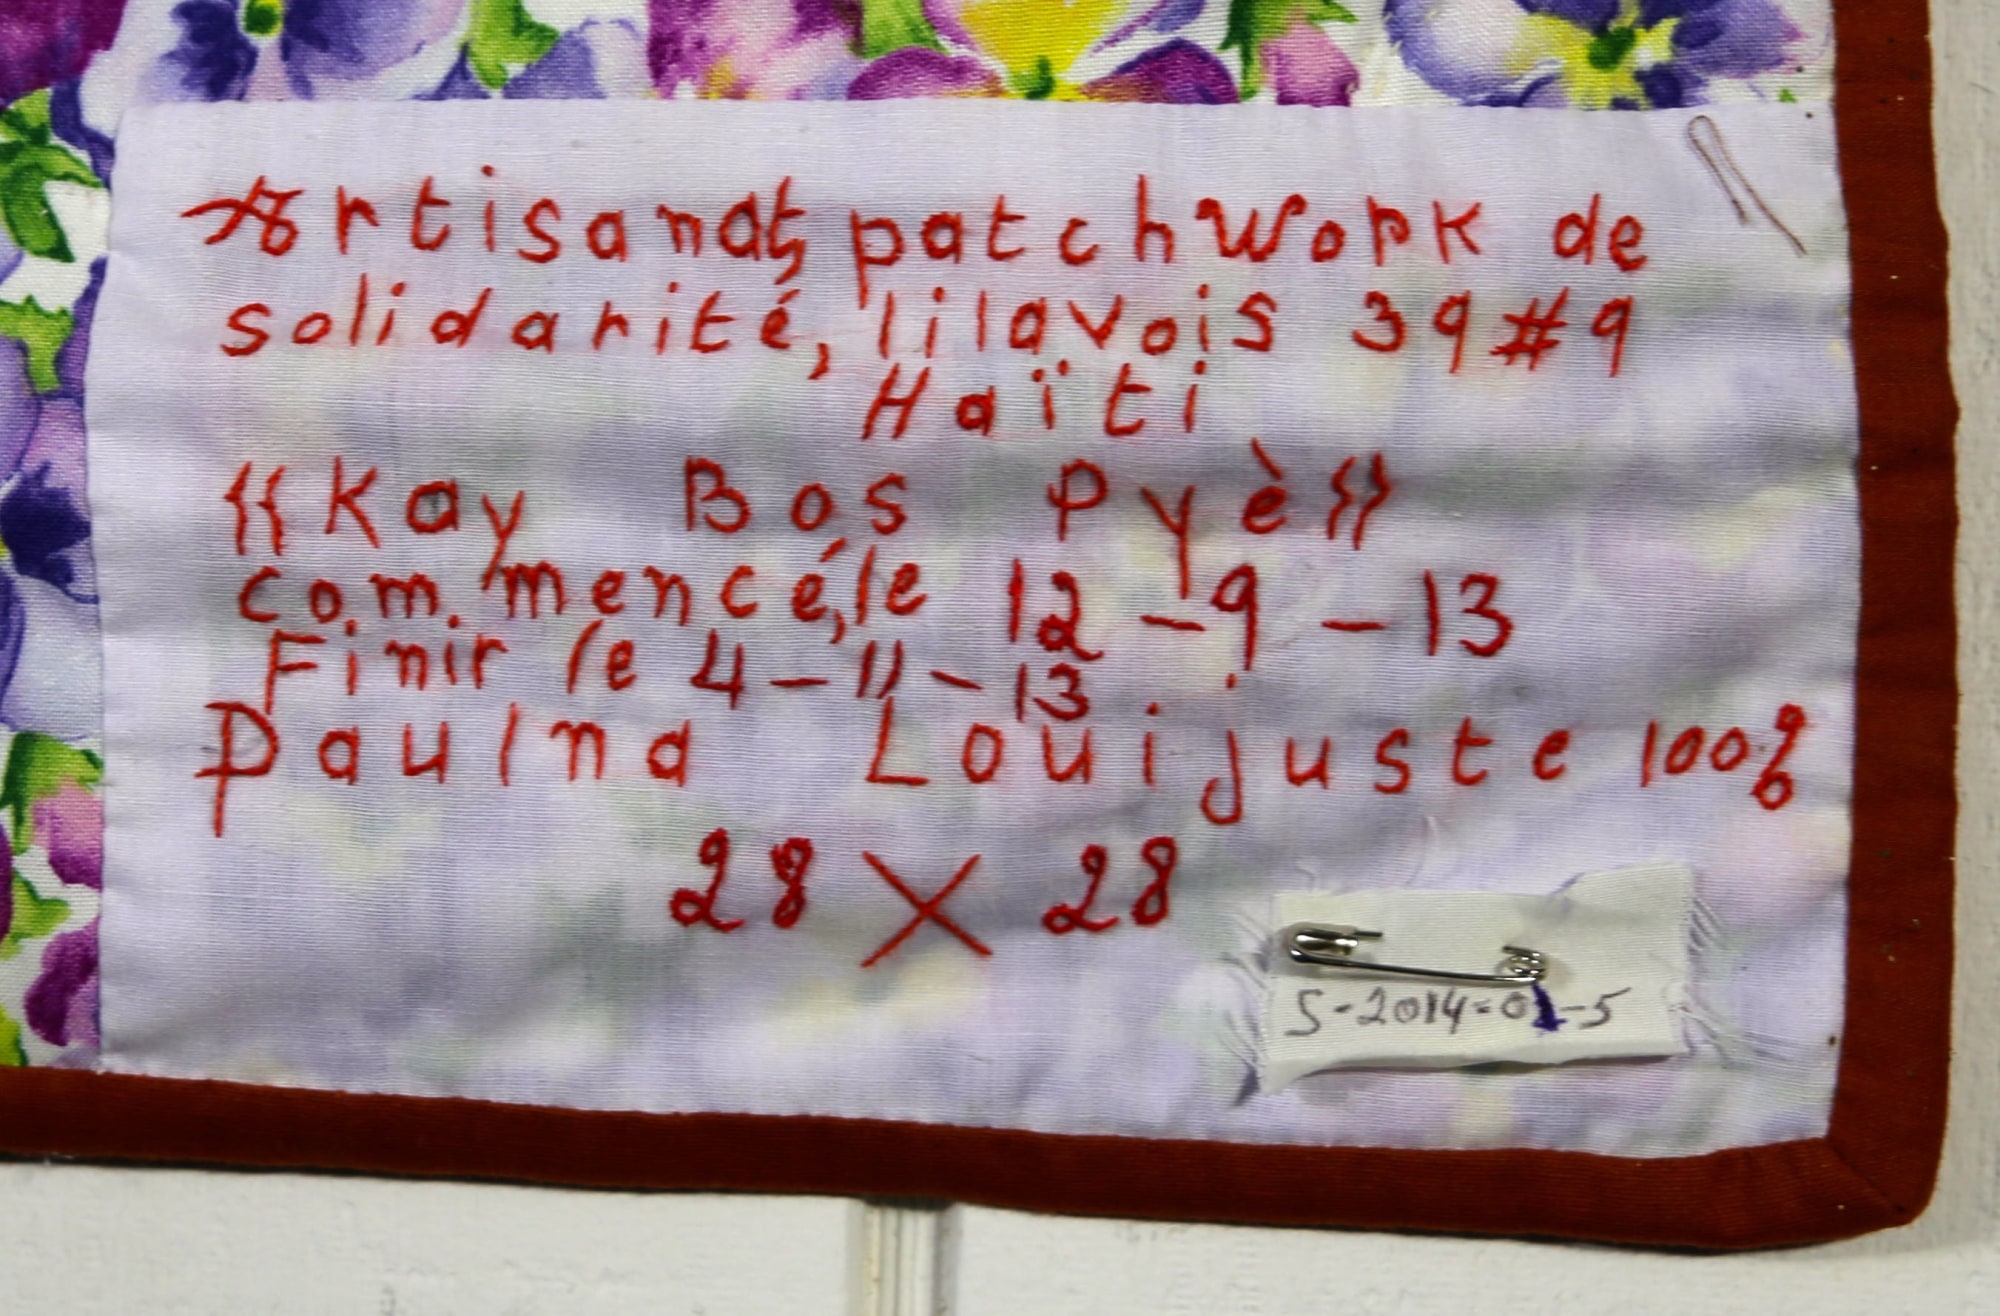 Artisanat, patchwork de
solidarité, lilavois 39 #9
Haïti
{{Kay Bos Pyè}}
commencé, le 12-9-13
Finir le 4-11-13
Paulna Louijuste 100%
28 X 28
S-2014-01-5